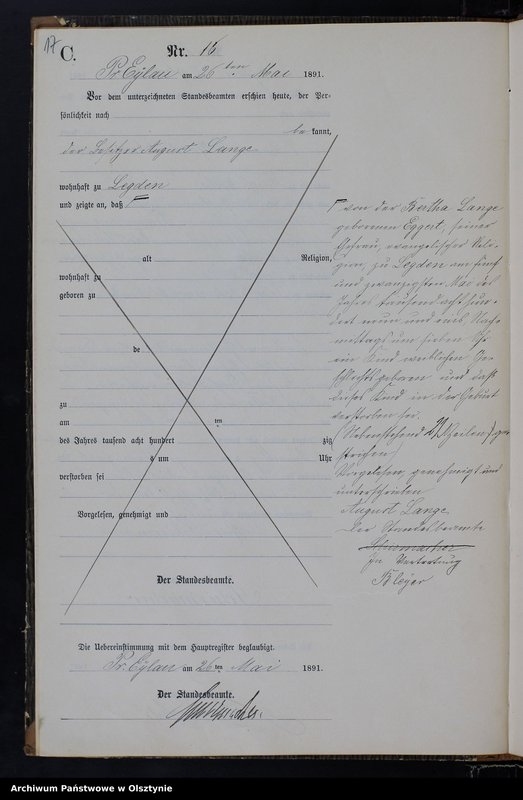 17
C.
Nr. 16
Pr. Eylau am 26ten Mai 1891.
Vor dem unterzeichneten Standesbeamten erschien heute, der Per-
sönlichkeit nach
bekannt,
der Besitzer August Lange
wohnhaft zu Legden
und zeigte an, daß
alt Religion,
wohnhaft zu
geboren zu
de
zu
am ten
des Jahres tausend acht hundert zig
s um Uhr
verstorben sei
Vorgelesen, genehmigt und
Der Standesbeamte.
von der Bertha Lange
geborenen Eggert, seiner
Ehefrau, evangelischer Reli-
gion, zu Legden am fünf
und zwanzigsten Mai des
Jahres tausend acht hun-
dert neun und eins, Nach-
mittags um sieben Uhr
ein Kind weiblichen Ge-
schlechts geboren und daß
dieses Kind in der Geburt
verstorben sei.
(Nebenstehend Zeilen ge-
strichen)
Vorgelesen, genehmigt und
unterschrieben
August Lange
Der Standesbeamte
in Vertretung
Die Uebereinstimmung mit dem Hauptregister beglaubigt.
Pr. Eylau am 26ten Mai 1891.
Der Standesbeamte.
Archiwum Państwowe w Olsztynie